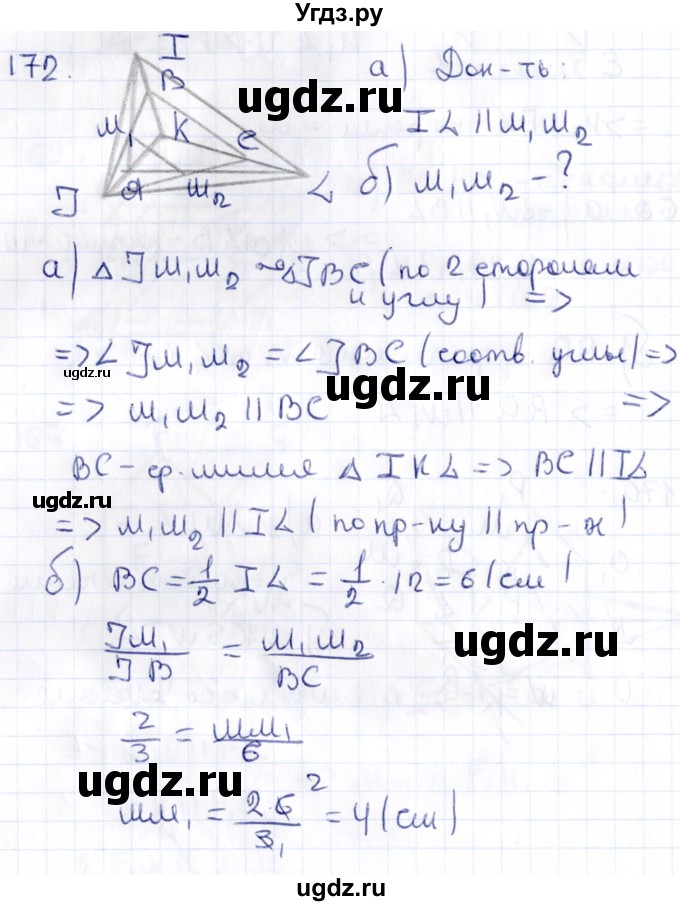 Угдз.ру
172.
I
B
M₁
K
C
J
A
M₂
L
а) Док-ть:
IL || M₁M₂
б) M₁M₂ - ?
а) △ JM₁M₂ ~ △JBC (по 2 сторонам
и углу) =>
=> ∠ JM₁M₂ = ∠JBC (соотв. углы) =>
=> M₁M₂ || BC =>
BC - ср. линия △ IKL => BC || IL
=> M₁M₂ || IL (по пр-ку || пр-х)
б) BC = 1/2 IL = 1/2 · 12 = 6 (см)
JM₁/JB = M₁M₂/BC
2/3 = MM₁/6
MM₁ = 2·6/3 = 4 (см)
ugdz.ru
ugdz.ru
ugdz.ru
ugdz.ru
ugdz.ru
ugdz.ru
ugdz.ru
ugdz.ru
ugdz.ru
ugdz.ru
ugdz.ru